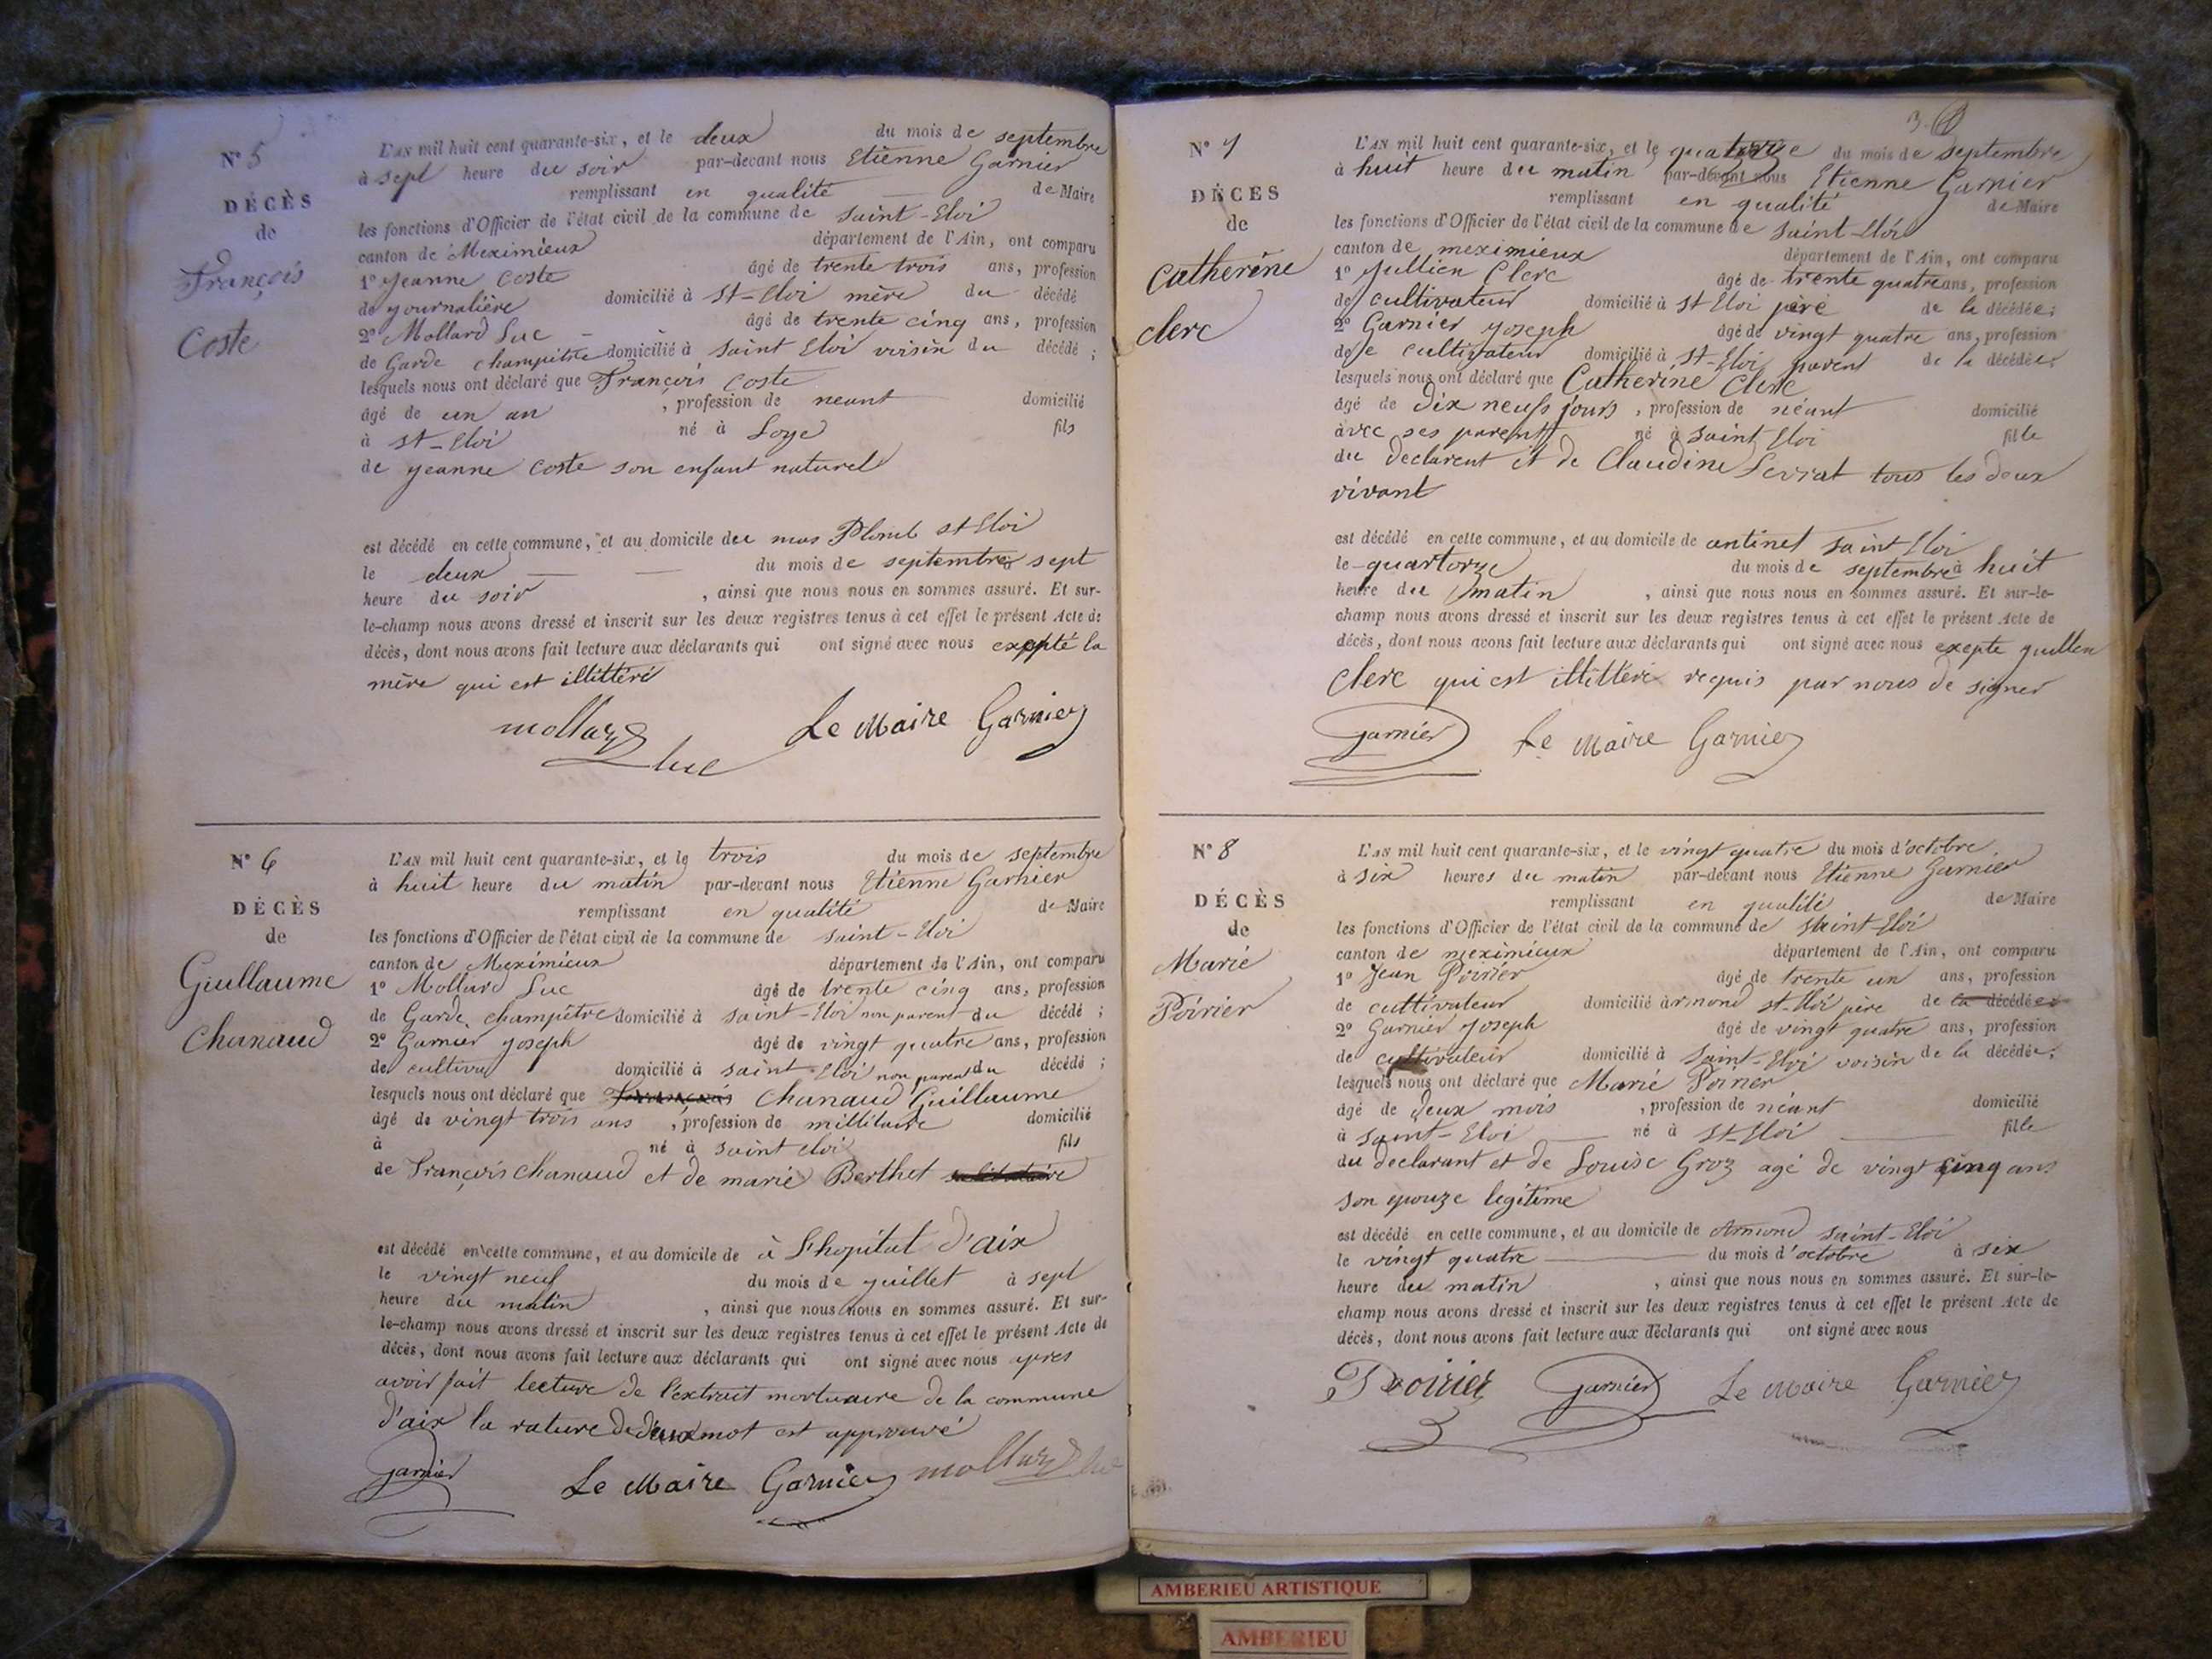 N° 5
DÉCÈS
de
François
Coste
L'AN mil huit cent quarante-six, et le deux du mois de septembre
à sept heure du soir par-devant nous Etienne Garnier
remplissant en qualité de Maire
les fonctions d'Officier de l'état civil de la commune de saint-Eloi
canton de Meximieux département de l'Ain, ont comparu
1° Jeanne Coste âgé de trente trois ans, profession
de journalière domicilié à st-Eloi mère du décédé
2° Mollard Luc âgé de trente cinq ans, profession
de Garde champêtre domicilié à saint Eloi voisin du décédé ;
lesquels nous ont déclaré que François Coste
âgé de un an , profession de neant domicilié
à st-Eloi né à Loye fils
de jeanne Coste son enfant naturel
est décédé en cette commune, et au domicile du mas Plomb st Eloi
le deux du mois de septembre sept
heure du soir , ainsi que nous nous en sommes assuré. Et sur-
le-champ nous avons dressé et inscrit sur les deux registres tenus à cet effet le présent Acte de
décès, dont nous avons fait lecture aux déclarants qui ont signé avec nous excepté la
mère qui est illittéré
mollard luc Le Maire Garnier
N° 6
DÉCÈS
de
Guillaume
Chanaud
L'AN mil huit cent quarante-six, et le trois du mois de septembre
à huit heure du matin par-devant nous Etienne Garnier
remplissant en qualité de Maire
les fonctions d'Officier de l'état civil de la commune de saint-Eloi
canton de Meximieux département de l'Ain, ont comparu
1° Mollard Luc âgé de trente cinq ans, profession
de Garde champêtre domicilié à saint-Eloi non parent du décédé ;
2° Garnier joseph âgé de vingt quatre ans, profession
de cultiva domicilié à saint Eloi non parent du décédé ;
lesquels nous ont déclaré que François Chanaud Guillaume
âgé de vingt trois ans , profession de millitaire domicilié
à né à saint eloi fils
de François chanaud et de marie Berthet
est décédé en cette commune, et au domicile de à L'hopital d'aix
le vingt neuf du mois de juillet à sept
heure du matin , ainsi que nous nous en sommes assuré. Et sur-
le-champ nous avons dressé et inscrit sur les deux registres tenus à cet effet le présent Acte de
décès, dont nous avons fait lecture aux déclarants qui ont signé avec nous apres
avoir fait lecture de l'extrait mortuaire de la commune
d'aix la rature de deux mot est approuvé
Garnier Le Maire Garnier mollard luc
3
N° 7
DÉCÈS
de
Catherine
clerc
L'AN mil huit cent quarante-six, et le quatorze du mois de septembre
à huit heure du matin par-devant nous Etienne Garnier
remplissant en qualité de Maire
les fonctions d'Officier de l'état civil de la commune de saint-Eloi
canton de meximieux département de l'Ain, ont comparu
1° Jullien Clerc âgé de trente quatre ans, profession
de cultivateur domicilié à st Eloi père de la décédée;
2° Garnier Joseph âgé de vingt quatre ans, profession
de cultivateur domicilié à st-Eloi parent de la décédée;
lesquels nous ont déclaré que Catherine Clerc
âgé de dix neufs jours , profession de néant domicilié
avec ses parents né à saint Eloi fille
du declarent et de Claudine Levrat tous les deux
vivant
est décédé en cette commune, et au domicile de antinet saint Eloi
le quartorze du mois de septembre à huit
heure du matin , ainsi que nous nous en sommes assuré. Et sur-le-
champ nous avons dressé et inscrit sur les deux registres tenus à cet effet le présent Acte de
décès, dont nous avons fait lecture aux déclarants qui ont signé avec nous exepte jullien
clerc qui est illittéré requis par nous de signer
Garnier Le Maire Garnier
N° 8
DÉCÈS
de
Marie
Poirier
L'AN mil huit cent quarante-six, et le vingt quatre du mois d'octobre
à six heures du matin par-devant nous Etienne Garnier
remplissant en qualité de Maire
les fonctions d'Officier de l'état civil de la commune de saint-Eloi
canton de meximieux département de l'Ain, ont comparu
1° Jean Poirier âgé de trente un ans, profession
de cultivateur domicilié à rmond st-Eloi père de la décédée
2° Garnier Joseph âgé de vingt quatre ans, profession
de cultivateur domicilié à saint-Eloi voisin de la décédée;
lesquels nous ont déclaré que Marie Poirier
âgé de deux mois , profession de néant domicilié
à saint-Eloi né à st-Eloi fille
du declarant et de Louise Groz agé de vingt cinq ans
son epouze legitime
est décédé en cette commune, et au domicile de Armond saint-Eloi
le vingt quatre du mois d'octobre à six
heure du matin , ainsi que nous nous en sommes assuré. Et sur-le-
champ nous avons dressé et inscrit sur les deux registres tenus à cet effet le présent Acte de
décès, dont nous avons fait lecture aux déclarants qui ont signé avec nous
Poirier Garnier Le Maire Garnier
AMBERIEU ARTISTIQUE
AMBERIEU